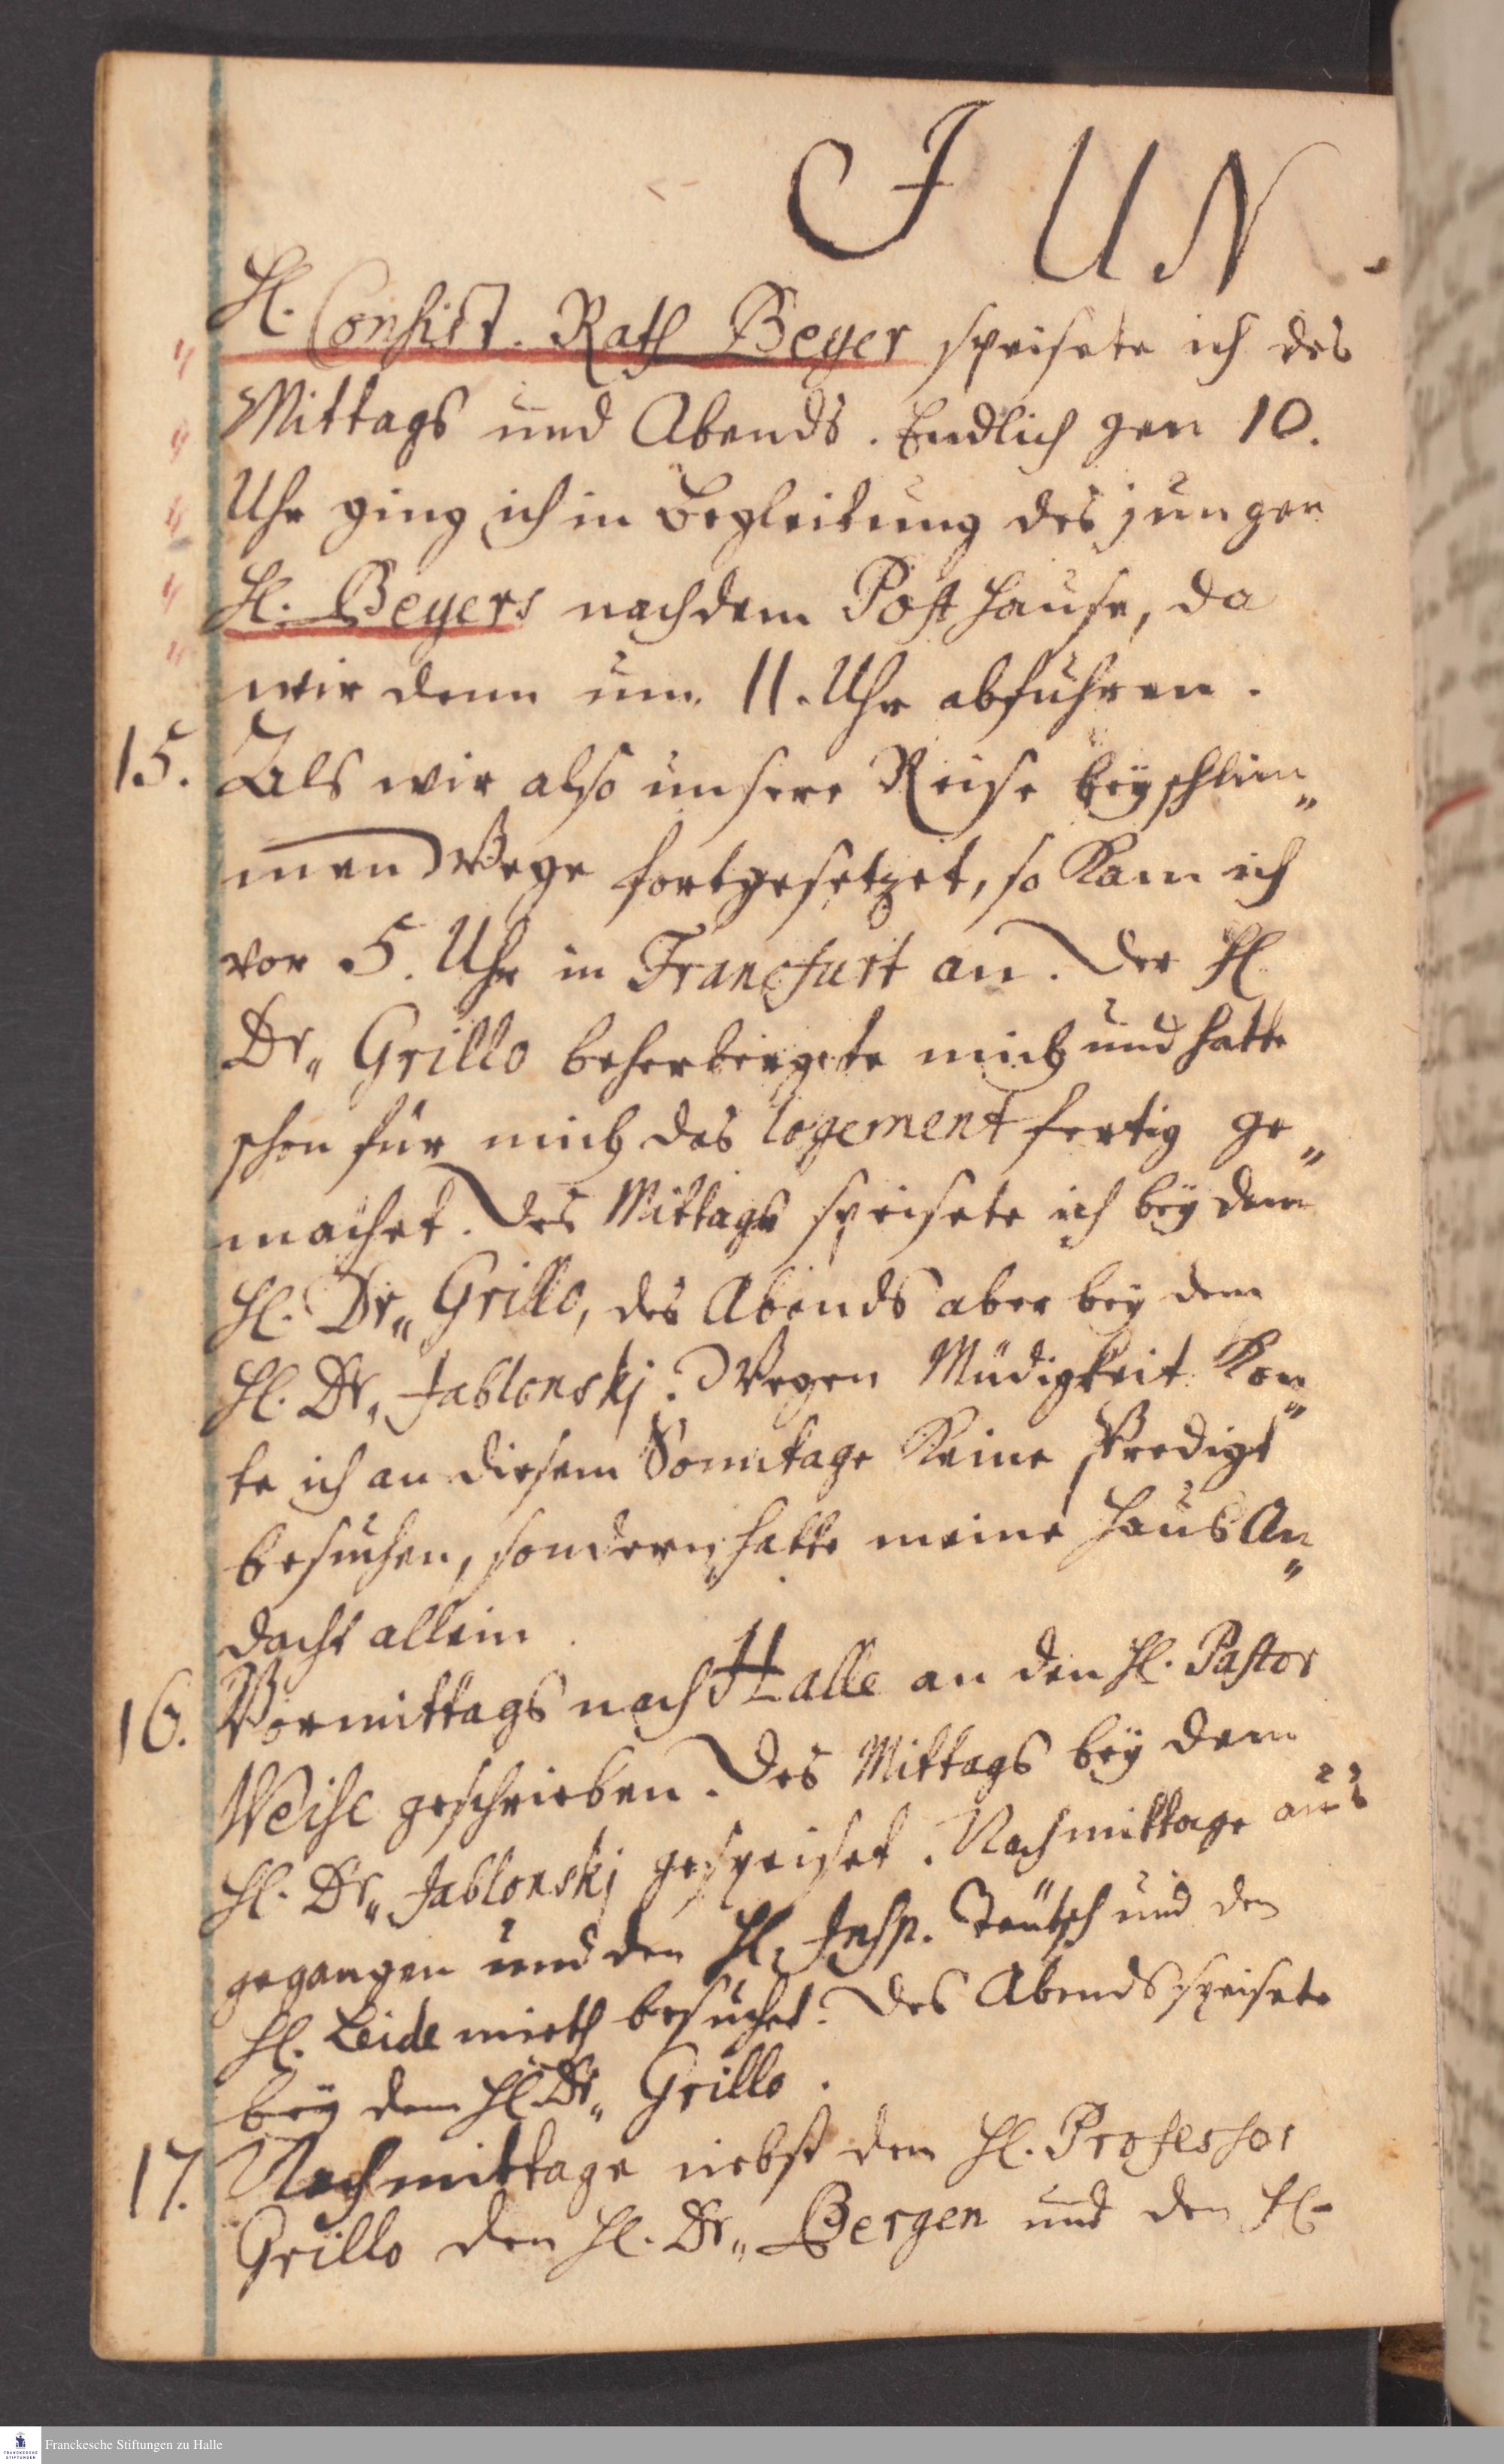 JUN
H. Consist. Rath Beyer speisete ich des
Mittags und Abends. Endlich gen 10.
Uhr ging ich in Begleitung des jungen
H. Beyers nach dem Posthause, da
wir denn um 11. Uhr abfuhren.
15. Als wir also unsere Reise bey schlim„
men Wege fortgesetzet, so kam ich
vor 5. Uhr in Francfurt an. Der H.
Dr„ Grillo beherbergete mich und hatte
schon für mich das logement fertig ge„
machet. Des Mittags speisete ich bey dem
H. Dr„ Grillo, des Abends aber bey dem
H. Dr„ Jablonskj. Wegen Müdigkeit kon„
te ich an diesem Sonntage keine Predigt
besuchen, sondern hatte meine Haus An„
dacht allein.
16. Vormittags nach Halle an den H. Pastor
Weise geschrieben. Des Mittags bey dem
H. Dr„ Jablonskj gespeiset. Nachmittage aus
gegangen und den H. Insp. Teütsch und den
H. Leidemith besuchet. Des Abends speisete
bey dem H. Dr„ Grillo.
17. Nachmittage nebst dem H. Professor
Grillo den H. Dr„ Bergen und den H.
Franckesche Stiftungen zu Halle